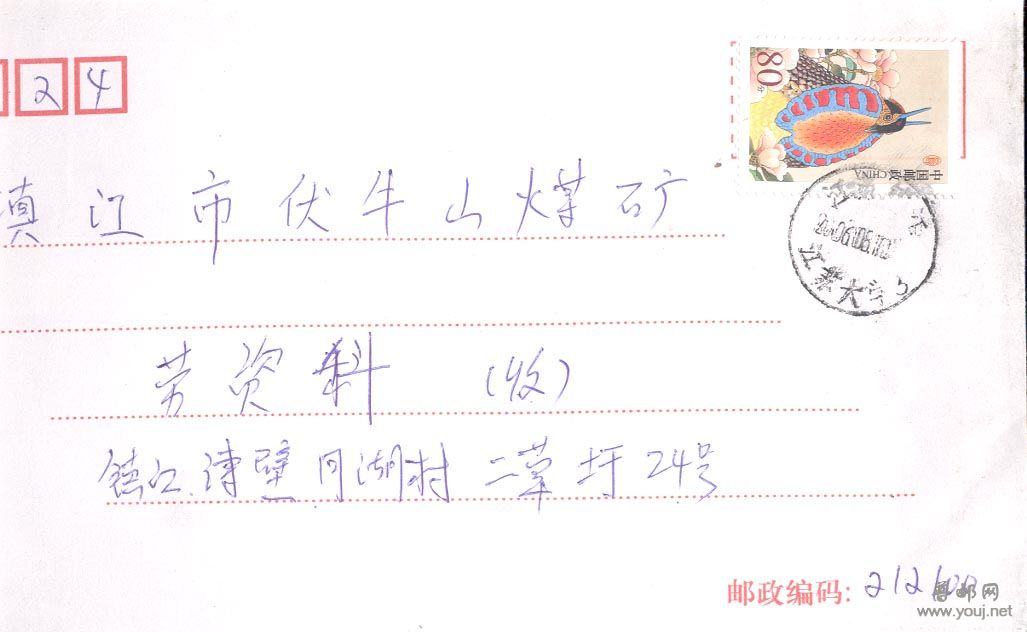 24
80分
中国邮政CHINA
镇江市伏牛山煤矿
江苏大学3
劳资科 (收)
镇江.谏壁月湖村 二草圩 24号
邮政编码: 212100
www.youj.net